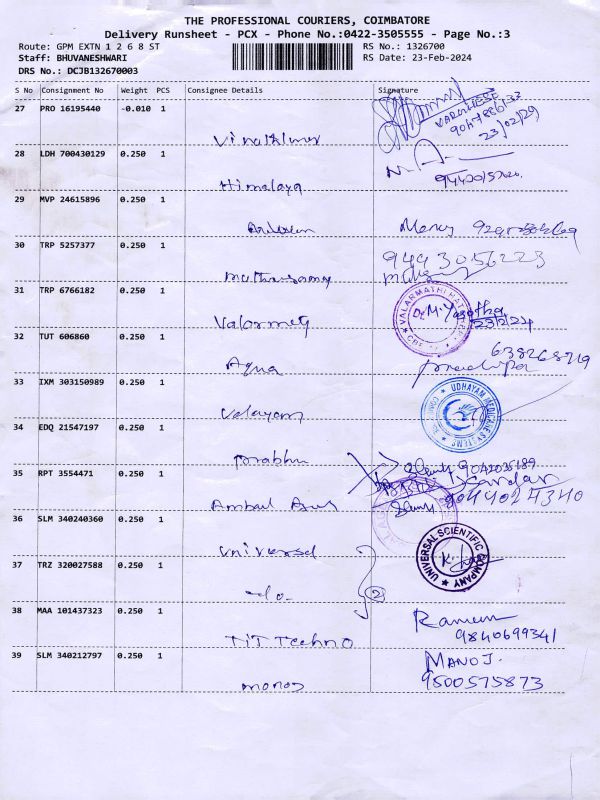 THE PROFESSIONAL COURIERS, COIMBATORE
Delivery Runsheet - PCX - Phone No.:0422-3505555 - Page No.:3
Route: GPM EXTN 1 2 6 8 ST RS No.: 1326700
Staff: BHUVANESHWARI RS Date: 23-Feb-2024
DRS No.: DCJB132670003
S No Consignment No Weight PCS Consignee Details Signature
27 PRO 16195440 -0.010 1
VARGHESE
23/02/29
28 LDH 700430129 0.250 1
Himalaya
29 MVP 24615896 0.250 1
Mercy
30 TRP 5257377 0.250 1
9443056223
31 TRP 6766182 0.250 1
VALARMATHI
Dr M. Yasotha
23/2/24
32 TUT 606860 0.250 1
Aqua
33 IXM 303150989 0.250 1
UDHAYAM MEDICARE SYSTEMS
34 EDQ 21547197 0.250 1
Prabhu
9042035189
35 RPT 3554471 0.250 1
9044024340
36 SLM 340240360 0.250 1
Universal
UNIVERSAL SCIENTIFIC COMPANY
37 TRZ 320027588 0.250 1
-do-
2
38 MAA 101437323 0.250 1
TIT Techno
Ramesh
9840699341
39 SLM 340212797 0.250 1
Manoj
MANOJ.
9500575873